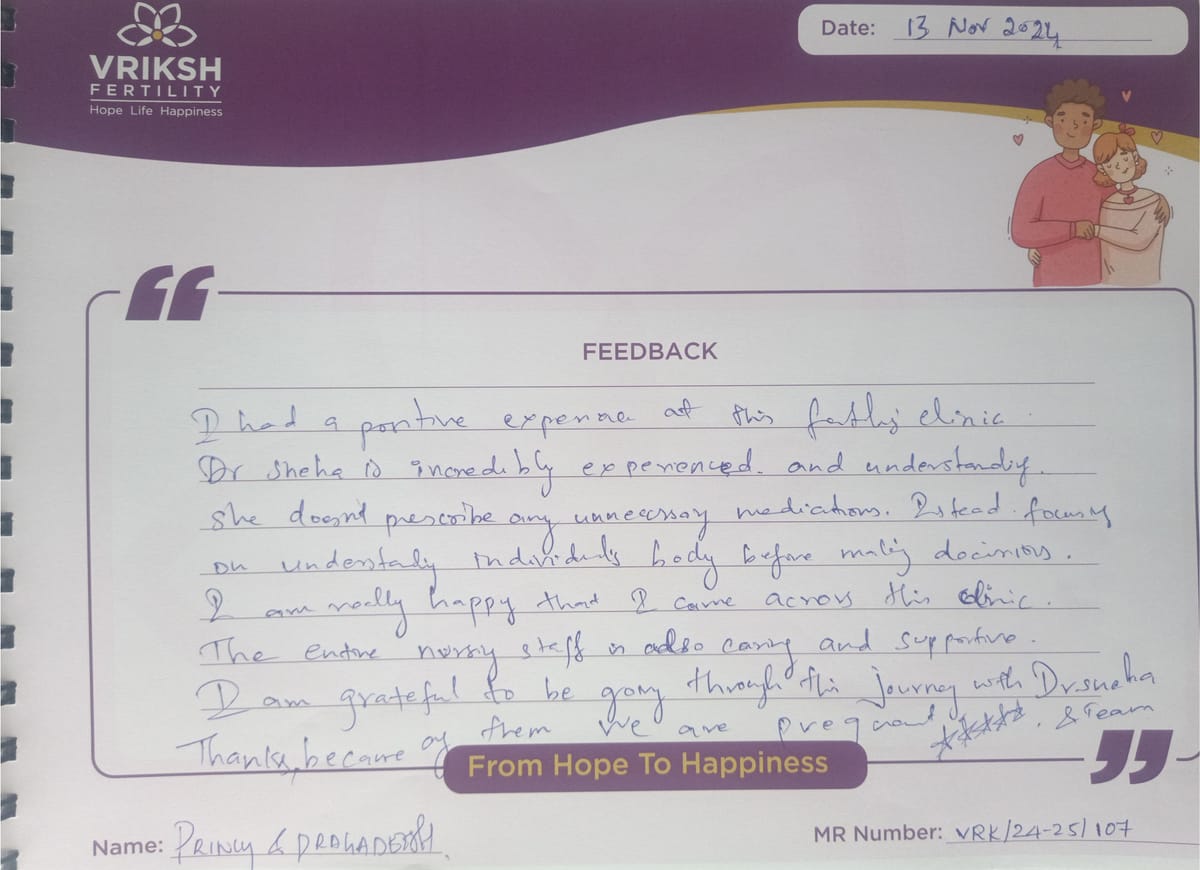 VRIKSH
FERTILITY
Hope Life Happiness
Date: 13 Nov 2024
FEEDBACK
I had a positive experience at this fertility clinic.
Dr Sneha is incredibly experienced. and understanding.
She doesn't prescribe any unnecessary medications. Instead focusing
on understanding individual's body before making decisions.
I am really happy that I came across this clinic.
The entire nursing staff is also caring and supportive.
I am grateful to be going through this journey with Dr Sneha
& Team
Thanks, because of them we are pregnant *****.
From Hope To Happiness
Name: PRINCY &
MR Number: VRK/24-25/107